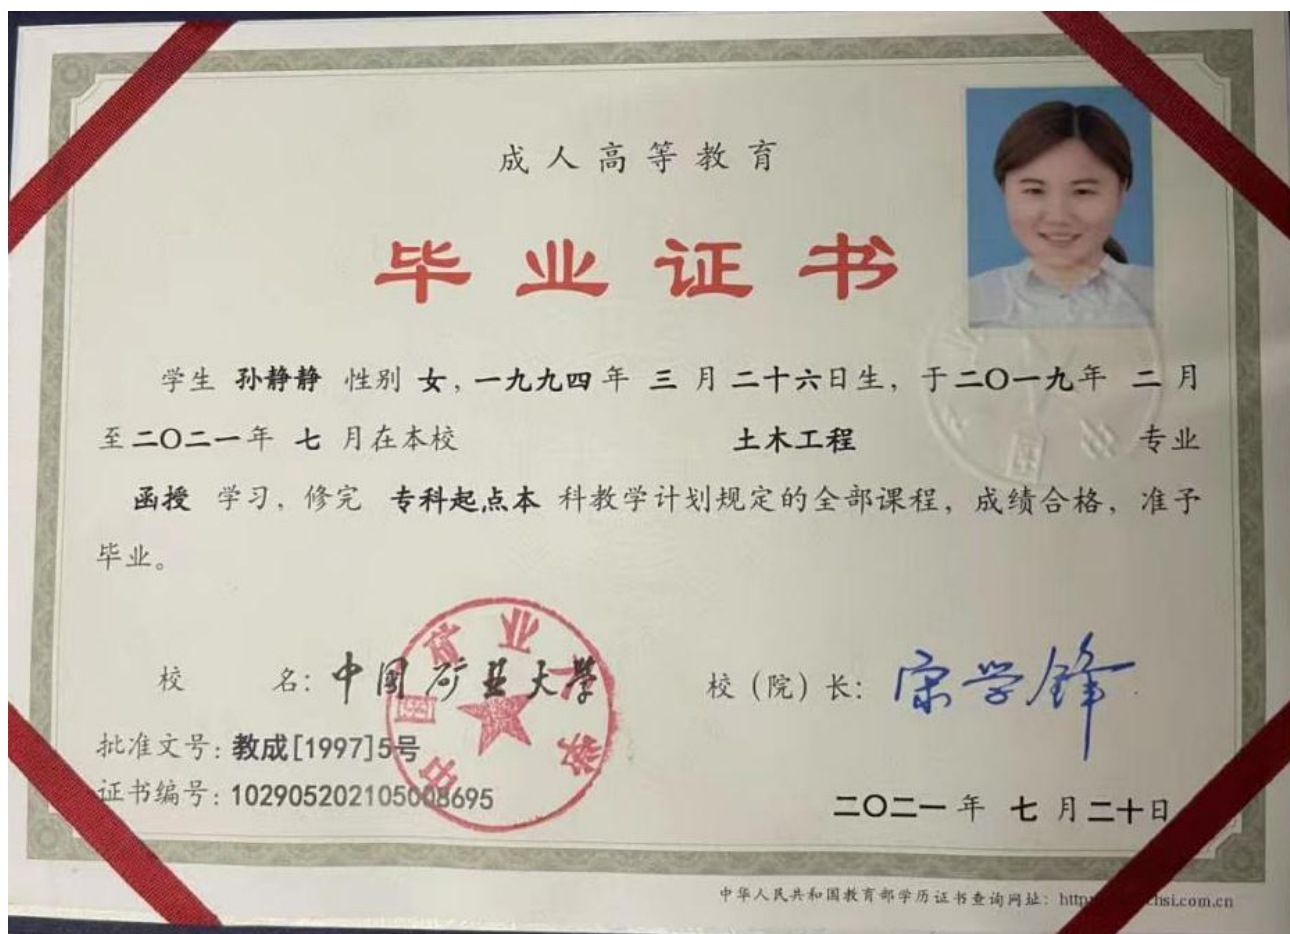 成人高等教育
毕业证书
学生 孙静静 性别 女，一九九四年 三 月二十六日生，于二〇一九年 二 月
至二〇二一年 七 月在本校 土木工程 专业
函授 学习，修完 专科起点本 科教学计划规定的全部课程，成绩合格，准予
毕业。
校 名：中国矿业大学 校（院）长：宋学锋
批准文号：教成[1997]5号
证书编号：102905202105008695
二〇二一 年 七 月二十日
中华人民共和国教育部学历证书查询网址：http hsi.com.cn
中国矿业大学